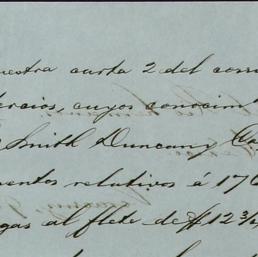 uestra carta 2 del corri
tercios, cuyos conocim
Smith Duncan y Ca
mentos relativos á 176
gas al flete de $12 3/4